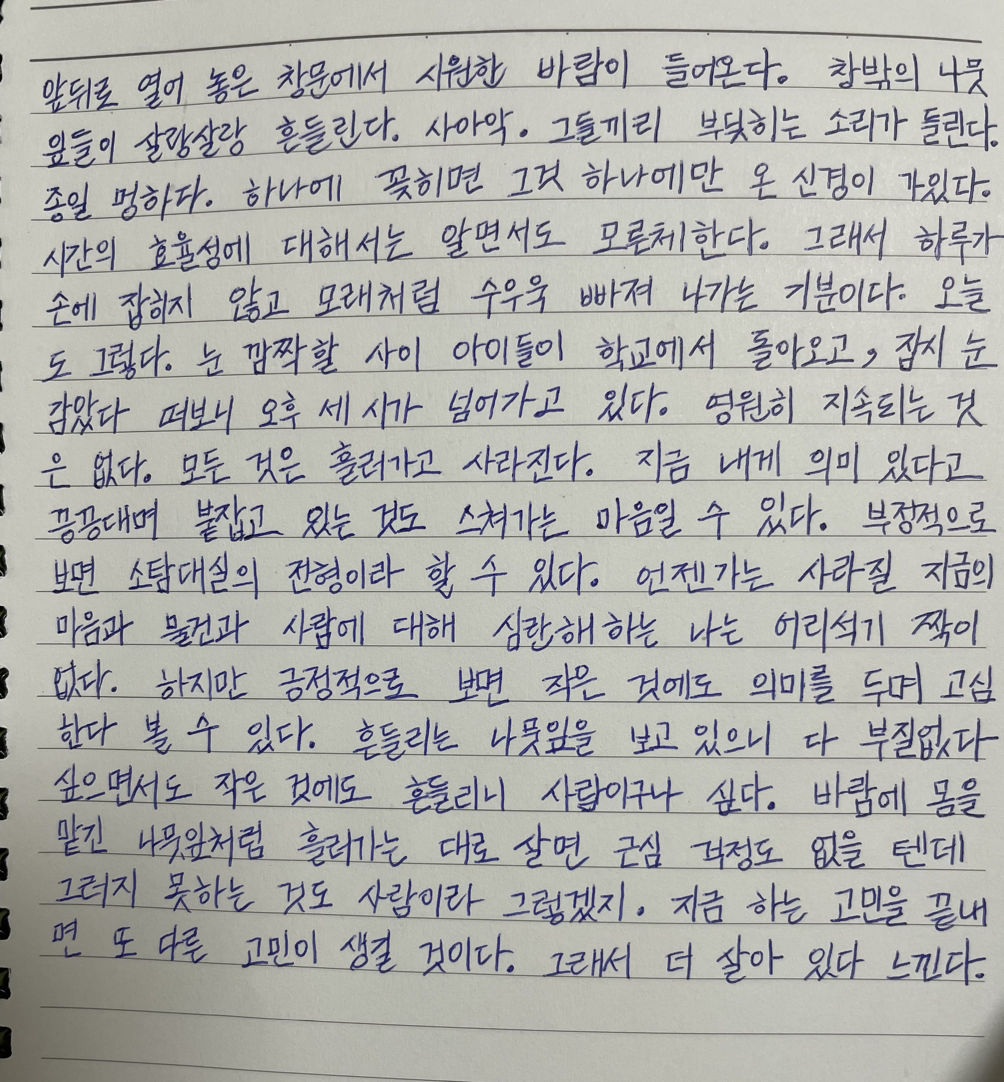 앞뒤로 열어 놓은 창문에서 시원한 바람이 들어온다. 창밖의 나뭇
잎들이 살랑살랑 흔들린다. 사아악. 그들끼리 부딪히는 소리가 들린다.
종일 멍하다. 하나에 꽂히면 그것 하나에만 온 신경이 가있다.
시간의 효율성에 대해서는 알면서도 모른체한다. 그래서 하루가
손에 잡히지 않고 모래처럼 수우욱 빠져 나가는 기분이다. 오늘
도 그렇다. 눈 깜짝할 사이 아이들이 학교에서 돌아오고, 잠시 눈
감았다 떠보니 오후 세 시가 넘어가고 있다. 영원히 지속되는 것
은 없다. 모든 것은 흘러가고 사라진다. 지금 내게 의미 있다고
끙끙대며 붙잡고 있는 것도 스쳐가는 마음일 수 있다. 부정적으로
보면 소탐대실의 전형이라 할 수 있다. 언젠가는 사라질 지금의
마음과 물건과 사람에 대해 심란해하는 나는 어리석기 짝이
없다. 하지만 긍정적으로 보면 작은 것에도 의미를 두며 고심
한다 볼 수 있다. 흔들리는 나뭇잎을 보고 있으니 다 부질없다
싶으면서도 작은 것에도 흔들리니 사람이구나 싶다. 바람에 몸을
맡긴 나뭇잎처럼 흘러가는 대로 살면 근심 걱정도 없을 텐데
그러지 못하는 것도 사람이라 그렇겠지. 지금 하는 고민을 끝내
면 또 다른 고민이 생길 것이다. 그래서 더 살아 있다 느낀다.